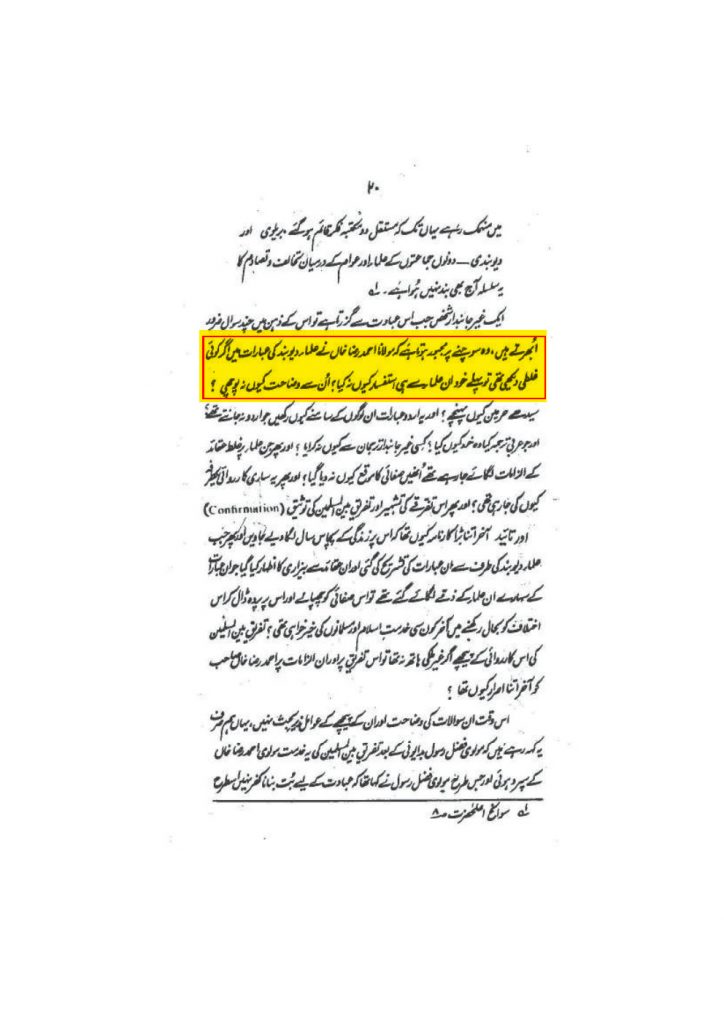 ۲۰
میں منہمک رہے یہاں تک کہ مستقل دو مکتبہ فکر قائم ہو گئے بریلوی اور
دیوبندی — دونوں جماعتوں کے علماء اور عوام کے درمیان تخالف و تصادم کا
یہ سلسلہ آج بھی بند نہیں ہوا ہے۔ لے
ایک غیر جانبدار شخص جب اس عبارت سے گزرتا ہے تو اس کے ذہن میں چند سوال ضرور
اُبھرتے ہیں، وہ سوچنے پر مجبور ہوتا ہے کہ مولانا احمد رضا خاں نے علماء دیوبند کی عبارات میں اگر کوئی
غلطی دیکھی تھی تو پہلے خود ان علماء سے ہی استفسار کیوں نہ کیا؟ اُن سے وضاحت کیوں نہ پوچھی ؟
سیدھے حرمین کیوں پہنچے ؟ اور یہ اردو عبارات ان لوگوں کے سامنے کیوں رکھیں جو اردو نہ جانتے تھے؟
اور جو عربی ترجمہ کیا وہ خود کیوں کیا؟ کسی غیر جانبدار ترجمان سے کیوں نہ کرایا ؟ اور پھر جن علماء پر غلط عقائد
کے الزامات لگائے جا رہے تھے اُنھیں صفائی کا موقع کیوں نہ دیا گیا؟ اور پھر یہ ساری کارروائی یکطرفہ
کیوں کی جا رہی تھی ؟ اور پھر اس تفرقے کی تشہیر اور تفریق بین المسلمین کی توثیق (Confirmation)
اور تائید آخر اتنا بڑا کارنامہ کیوں تھا کہ اس پر زندگی کے پچاس سال لگا دیے جاویں اور پھر جب
علماء دیوبند کی طرف سے ان عبارات کی تشریح کی گئی اور ان عقائد سے بیزاری کا اظہار کیا گیا جو ان عبارات
کے سہارے ان علماء کے ذمے لگائے گئے تھے تو اس صفائی کو چھپانے اور اس پر پردہ ڈال کر اس
اختلاف کو بحال رکھنے میں آخر کون سی خدمت اسلام اور مسلمانوں کی خیر خواہی تھی ؟ تفریق بین المسلمین
کی اس کارروائی کے پیچھے اگر غیر ملکی ہاتھ نہ تھا تو اس تفریق پر اور ان الزامات پر احمد رضا خاں صاحب
کو آخر اتنا اصرار کیوں تھا ؟
اس وقت ان سوالات کی وضاحت اور ان کے پیچھے کے عوامل زیر بحث نہیں، یہاں ہم صرف
یہ کہہ رہے ہیں کہ مولوی فضل رسول بدایونی کے بعد تفریق بین المسلمین کی یہ خدمت مولوی احمد رضا خاں
کے سپرد ہوئی اور جس طرح مولوی فضل رسول نے کہا تھا کہ عبادت کے لیے بُت بنانا کفر نہیں اسطرح
لے سوانح اعلحضرت ص ۸